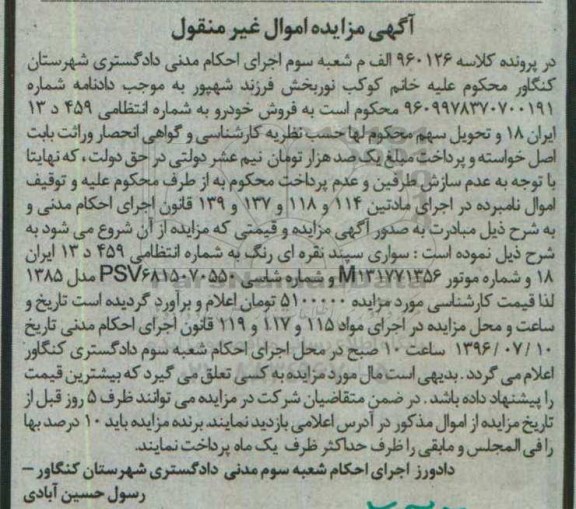 آگهی مزایده اموال غیر منقول
در پرونده کلاسه ۹۶۰۱۲۶ الف م شعبه سوم اجرای احکام مدنی دادگستری شهرستان
کنگاور محکوم علیه خانم کوکب نوربخش فرزند شهپور به موجب دادنامه شماره
۹۶۰۹۹۷۸۳۷۰۷۰۰۱۹۱ محکوم است به فروش خودرو به شماره انتظامی ۴۵۹ د ۱۳
ایران ۱۸ و تحویل سهم محکوم لها حسب نظریه کارشناسی و گواهی انحصار وراثت بابت
اصل خواسته و پرداخت مبلغ یک صد هزار تومان نیم عشر دولتی در حق دولت ، که نهایتا
با توجه به عدم سازش طرفین و عدم پرداخت محکوم به از طرف محکوم علیه و توقیف
اموال نامبرده در اجرای مادتین ۱۱۴ و ۱۱۸ و ۱۳۷ و ۱۳۹ قانون اجرای احکام مدنی و
به شرح ذیل مبادرت به صدور آگهی مزایده و قیمتی که مزایده از آن شروع می شود به
شرح ذیل نموده است : سواری سپند نقره ای رنگ به شماره انتظامی ۴۵۹ د ۱۳ ایران
۱۸ و شماره موتور M۱۳۱۷۷۱۳۵۶ و شماره شاسی PSV۶۸۱۵۰۷۰۵۵۰ مدل ۱۳۸۵
لذا قیمت کارشناسی مورد مزایده ۵۱۰۰۰۰۰ تومان اعلام و برآورد گردیده است تاریخ و
ساعت و محل مزایده در اجرای مواد ۱۱۵ و ۱۱۷ و ۱۱۹ قانون اجرای احکام مدنی تاریخ
۱۰ / ۰۷ / ۱۳۹۶ ساعت ۱۰ صبح در محل اجرای احکام شعبه سوم دادگستری کنگاور
اعلام می گردد . بدیهی است مال مورد مزایده به کسی تعلق می گیرد که بیشترین قیمت
را پیشنهاد داده باشد . در ضمن متقاضیان شرکت در مزایده می توانند ظرف ۵ روز قبل از
تاریخ مزایده از اموال مذکور در آدرس اعلامی بازدید نمایند. برنده مزایده باید ۱۰ درصد بها
را فی المجلس و مابقی را ظرف حداکثر ظرف یک ماه پرداخت نمایند.
دادورز اجرای احکام شعبه سوم مدنی دادگستری شهرستان کنگاور –
رسول حسین آبادی